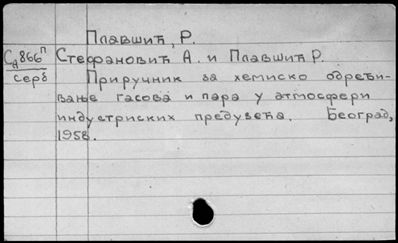 Плавшић, Р.
Сд866п Стефановић А. и Плавшић Р.
серб Приручник за хемиско одређи-
вање гасова и пара у атмосфери
индустриских предузећа. Београд,
1958.